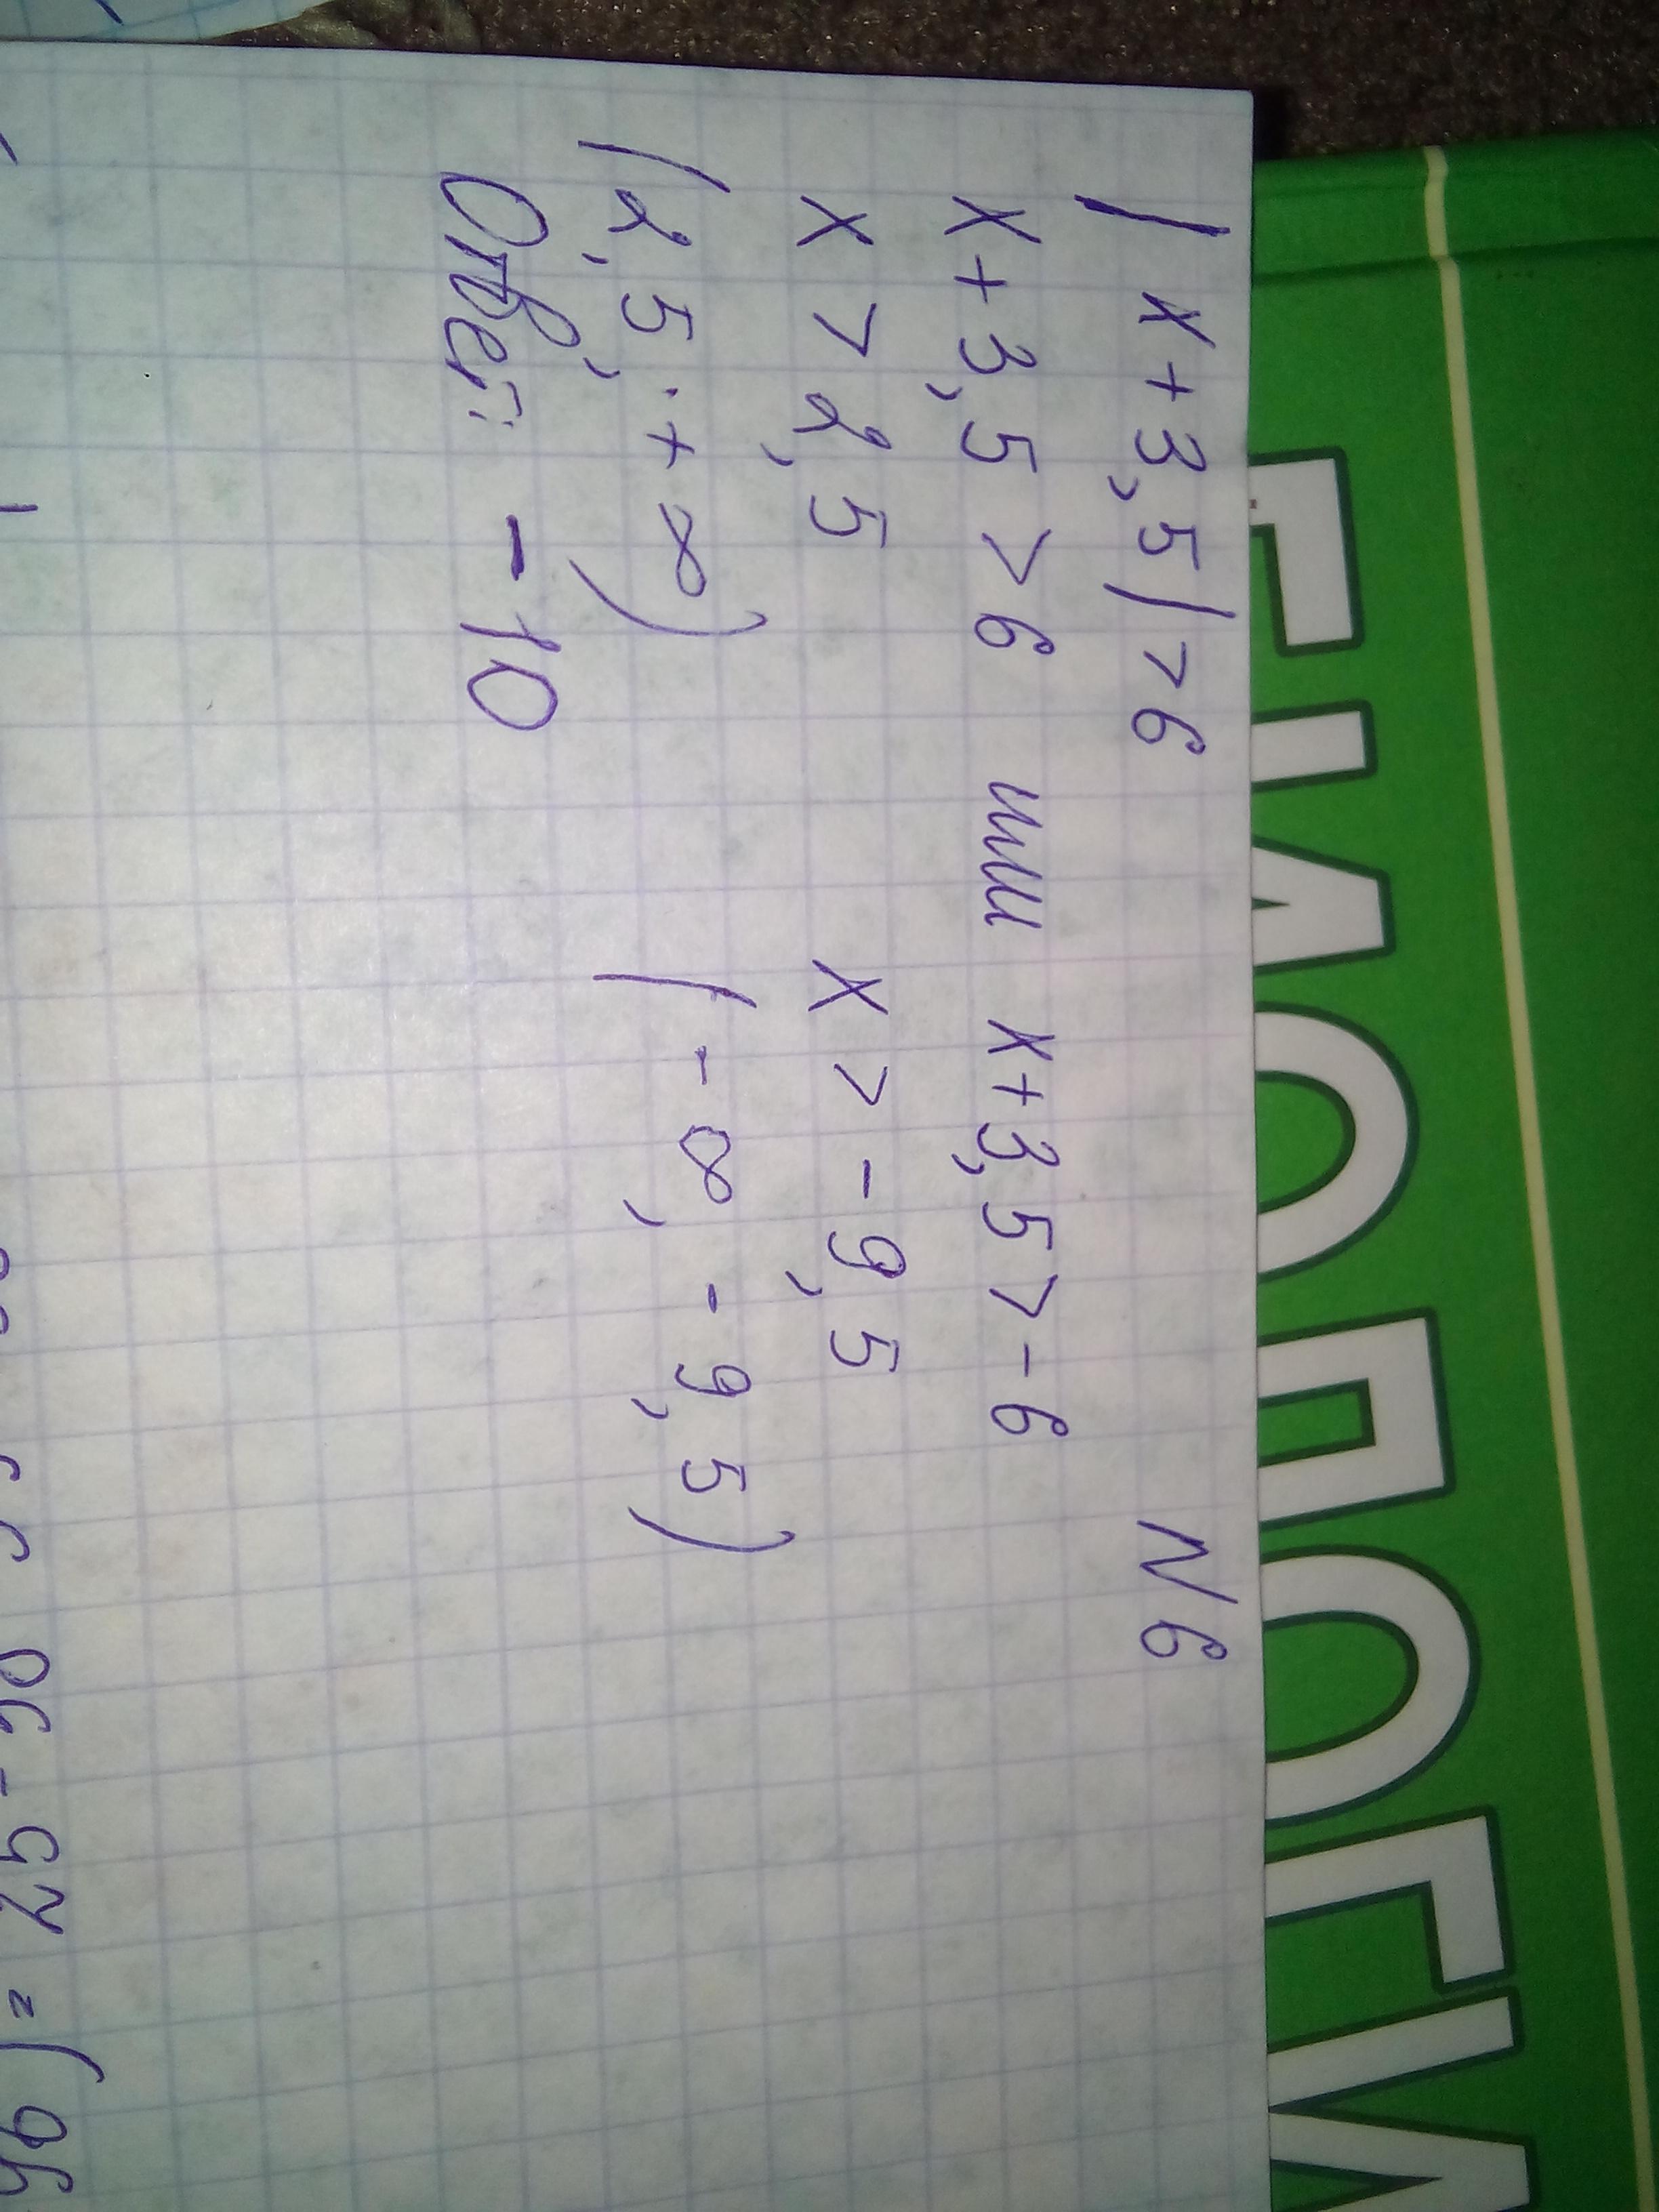 БИОЛОГИ
№6
|x+3,5|>6
x+3,5>6 или x+3,5>-6
x>2,5 x>-9,5
(2,5; +∞) (-∞, -9,5)
Ответ: -10